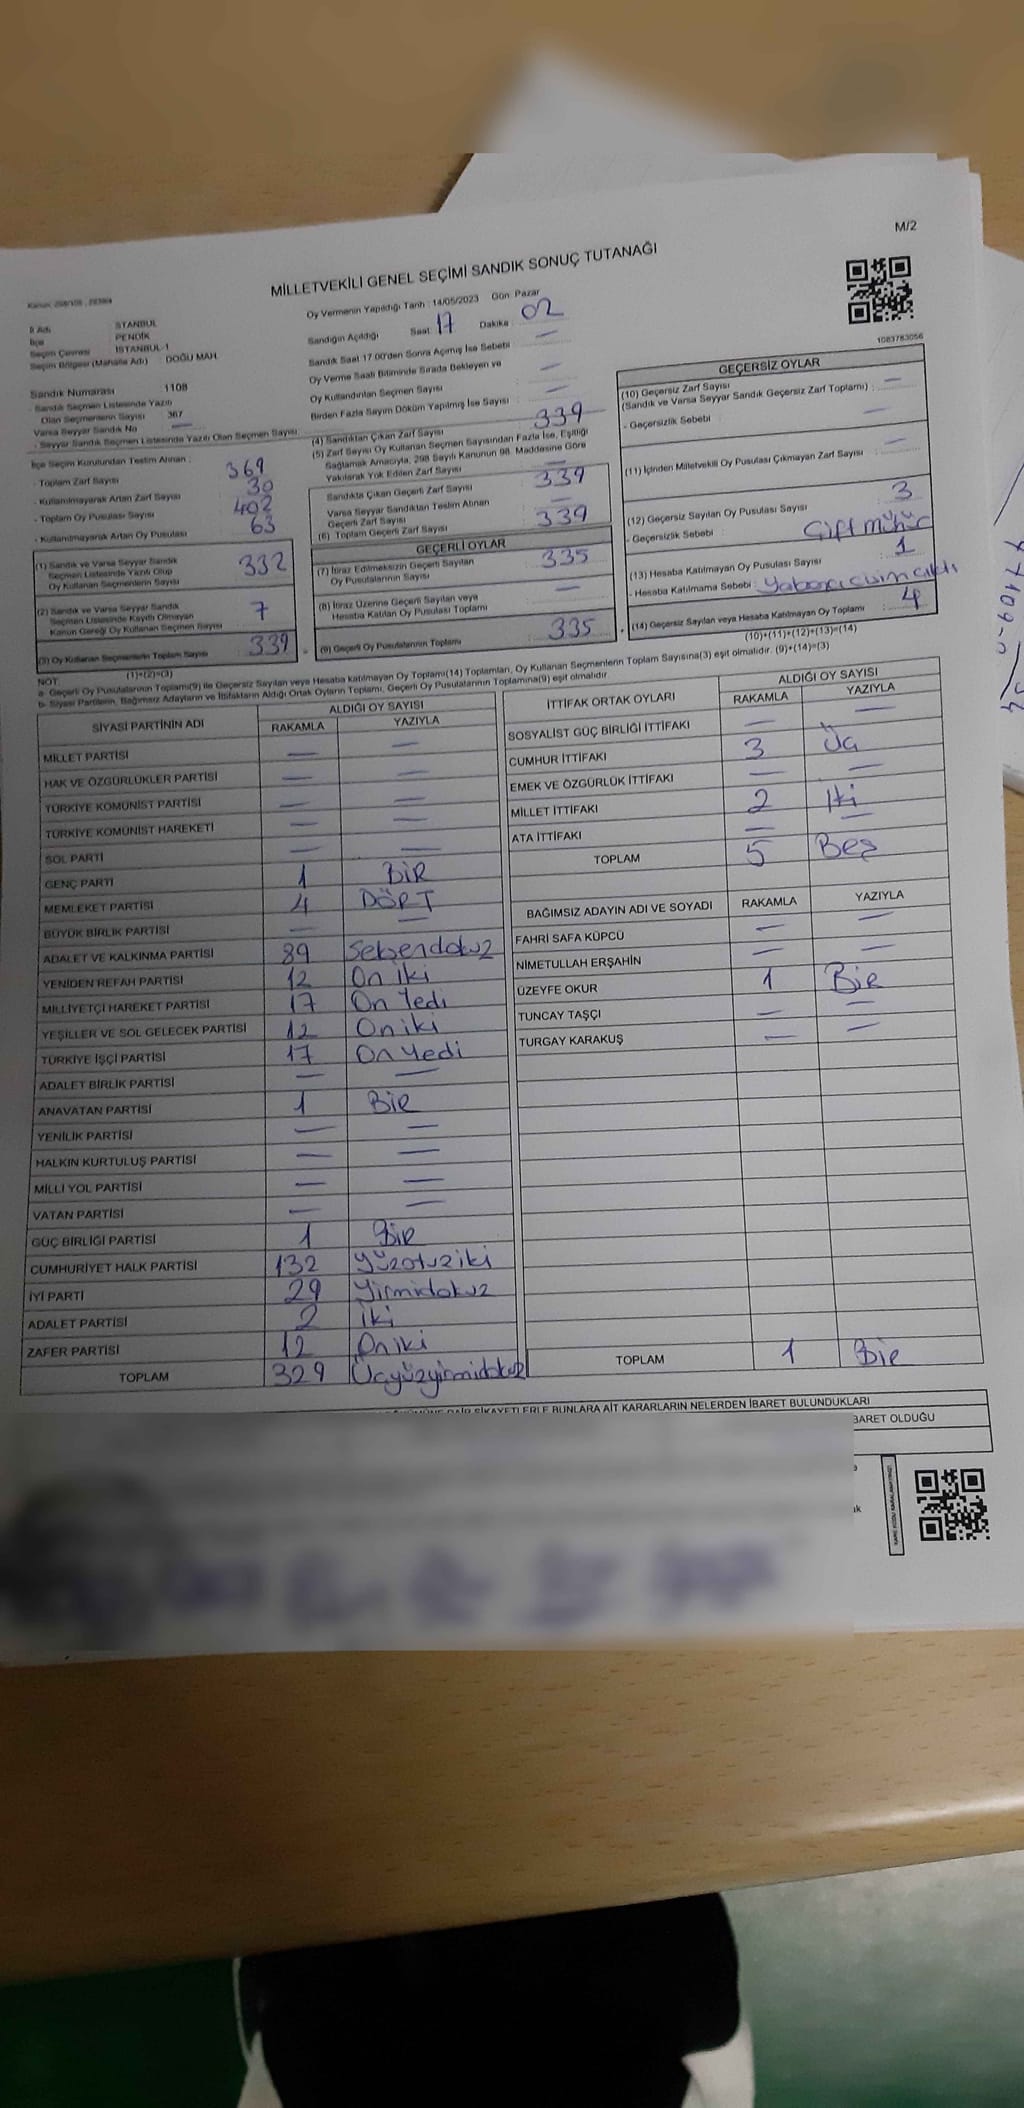 M/2
MİLLETVEKİLİ GENEL SEÇİMİ SANDIK SONUÇ TUTANAĞI
İli Adı İSTANBUL
İlçe PENDİK
Seçim Çevresi İSTANBUL-1
Seçim Bölgesi (Mahalle Adı) DOĞU MAH.
Sandık Numarası 1108
- Sandık Seçmen Listesinde Yazılı
Olan Seçmenlerin Sayısı 367
Varsa Seyyar Sandık No —
- Seyyar Sandık Seçmen Listesinde Yazılı Olan Seçmen Sayısı:
Oy Vermenin Yapıldığı Tarih : 14/05/2023 Gün: Pazar
Sandığın Açıldığı Saat 17 Dakika : 02
Sandık Saat 17.00'den Sonra Açımış İse Sebebi : —
Oy Verme Saati Bitiminde Sırada Bekleyen ve
Oy Kullandırılan Seçmen Sayısı —
Birden Fazla Sayım Döküm Yapılmış İse Sayısı : —
1083783056
İlçe Seçim Kurulundan Teslim Alınan :
- Toplam Zarf Sayısı 369
- Kullanılmayarak Artan Zarf Sayısı 30
- Toplam Oy Pusulası Sayısı 402
- Kullanılmayarak Artan Oy Pusulası 63
(1) Sandık ve Varsa Seyyar Sandık
Seçmen Listesinde Yazılı Olup
Oy Kullanan Seçmenlerin Sayısı 332
(2) Sandık ve Varsa Seyyar Sandık
Seçmen Listesinde Kayıtlı Olmayan
Kanun Gereği Oy Kullanan Seçmen Sayısı 7
(3) Oy Kullanan Seçmenlerin Toplam Sayısı 339
(1)+(2)=(3)
(4) Sandıktan Çıkan Zarf Sayısı 339
(5) Zarf Sayısı Oy Kullanan Seçmen Sayısından Fazla İse, Eşitliği
Sağlamak Amacıyla, 298 Sayılı Kanunun 98. Maddesine Göre
Yakılarak Yok Edilen Zarf Sayısı —
Sandıkta Çıkan Geçerli Zarf Sayısı 339
Varsa Seyyar Sandıktan Teslim Alınan
Geçerli Zarf Sayısı —
(6) Toplam Geçerli Zarf Sayısı 339
GEÇERLİ OYLAR
(7) İtiraz Edilmeksizin Geçerli Sayılan
Oy Pusulalarının Sayısı 335
(8) İtiraz Üzerine Geçerli Sayılan veya
Hesaba Katılan Oy Pusulası Toplamı —
(9) Geçerli Oy Pusulalarının Toplamı 335
GEÇERSİZ OYLAR
(10) Geçersiz Zarf Sayısı
(Sandık ve Varsa Seyyar Sandık Geçersiz Zarf Toplamı) : —
- Geçersizlik Sebebi : —
(11) İçinden Milletvekili Oy Pusulası Çıkmayan Zarf Sayısı —
(12) Geçersiz Sayılan Oy Pusulası Sayısı 3
- Geçersizlik Sebebi : Çift mühür
(13) Hesaba Katılmayan Oy Pusulası Sayısı 1
- Hesaba Katılmama Sebebi : Yabancı cisim çıktı
(14) Geçersiz Sayılan veya Hesaba Katılmayan Oy Toplamı : 4
(10)+(11)+(12)+(13)=(14)
NOT:
a- Geçerli Oy Pusulalarının Toplamı(9) ile Geçersiz Sayılan veya Hesaba katılmayan Oy Toplamı(14) Toplamları, Oy Kullanan Seçmenlerin Toplam Sayısına(3) eşit olmalıdır. (9)+(14)=(3)
b- Siyasi Partilerin, Bağımsız Adayların ve İttifakların Aldığı Ortak Oyların Toplamı, Geçerli Oy Pusulalarının Toplamına(9) eşit olmalıdır
SİYASİ PARTİNİN ADI ALDIĞI OY SAYISI
RAKAMLA YAZIYLA
MİLLET PARTİSİ — —
HAK VE ÖZGÜRLÜKLER PARTİSİ — —
TÜRKİYE KOMÜNİST PARTİSİ — —
TÜRKİYE KOMÜNİST HAREKETİ — —
SOL PARTİ — —
GENÇ PARTİ 1 BİR
MEMLEKET PARTİSİ 4 DÖRT
BÜYÜK BİRLİK PARTİSİ — —
ADALET VE KALKINMA PARTİSİ 89 Seksendokuz
YENİDEN REFAH PARTİSİ 12 On iki
MİLLİYETÇİ HAREKET PARTİSİ 17 On Yedi
YEŞİLLER VE SOL GELECEK PARTİSİ 12 On iki
TÜRKİYE İŞÇİ PARTİSİ 17 On Yedi
ADALET BİRLİK PARTİSİ — —
ANAVATAN PARTİSİ 1 BiR
YENİLİK PARTİSİ — —
HALKIN KURTULUŞ PARTİSİ — —
MİLLİ YOL PARTİSİ — —
VATAN PARTİSİ — —
GÜÇ BİRLİĞİ PARTİSİ 1 BiR
CUMHURİYET HALK PARTİSİ 132 Yüzotuziki
İYİ PARTİ 29 Yirmidokuz
ADALET PARTİSİ 2 iki
ZAFER PARTİSİ 12 Oniki
TOPLAM 329 Üçyüzyirmidokuz
İTTİFAK ORTAK OYLARI ALDIĞI OY SAYISI
RAKAMLA YAZIYLA
SOSYALİST GÜÇ BİRLİĞİ İTTİFAKI — —
CUMHUR İTTİFAKI 3 Üç
EMEK VE ÖZGÜRLÜK İTTİFAKI — —
MİLLET İTTİFAKI 2 İki
ATA İTTİFAKI — —
TOPLAM 5 Beş
BAĞIMSIZ ADAYIN ADI VE SOYADI RAKAMLA YAZIYLA
FAHRİ SAFA KÜPCÜ — —
NİMETULLAH ERŞAHİN — —
ÜZEYFE OKUR 1 BiR
TUNCAY TAŞÇI — —
TURGAY KARAKUŞ — —
TOPLAM 1 BiR
ŞİKAYETLERLE BUNLARA AİT KARARLARIN NELERDEN İBARET BULUNDUKLARI
BARET OLDUĞU